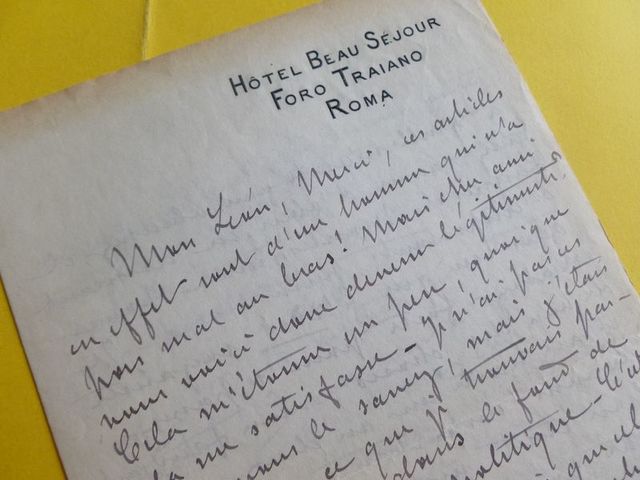 HÔTEL BEAU SÉJOUR
FORO TRAIANO
ROMA
Mon Léon, Merci, ces articles
en effet sont d'un homme qui n'a
pas mal au bras! Mais cher ami
vous voici donc devenu légitimiste.
Cela m'étonne un peu, quoique
cela me satisfasse - je n'ai pas
vous le savez, mais j'étais
ce que je trouvais par-
dans le fond de
politique - C'
que